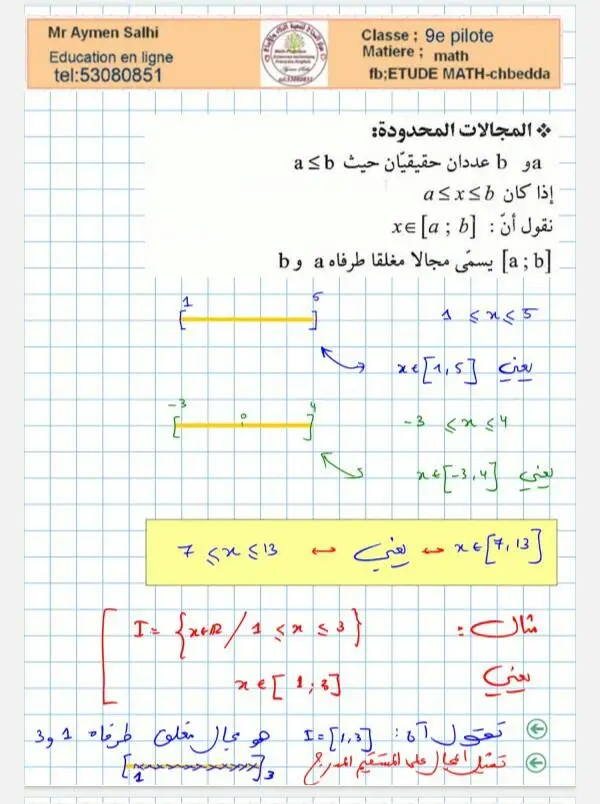 Mr Aymen Salhi
Education en ligne
tel:53080851
Classe ; 9e pilote
Matiere ; math
fb;ETUDE MATH-chbedda
❖ المجالات المحدودة:
a و b عددان حقيقيّان حيث a≤b
إذا كان a≤x≤b
نقول أنّ : x∈[a ; b]
[a ; b] يسمّى مجالا مغلقا طرفاه a و b
1 5
1 ≤ x ≤ 5
يعني x∈[1,5]
-3 0 4
-3 ≤ x ≤ 4
يعني x∈[-3,4]
7 ≤ x ≤ 13 ↔ يعني ↔ x∈[7,13]
مثال :
I = {x∈IR / 1 ≤ x ≤ 3}
يعني x∈[1;3]
نقول أن : I=[1,3] هو مجال مغلق طرفاه 1 و 3
تمثيل المجال على المستقيم المدرج
1 3